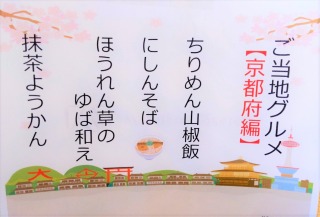 ご当地グルメ
【京都府編】
ちりめん山椒飯
にしんそば
ほうれん草の
ゆば和え
抹茶ようかん